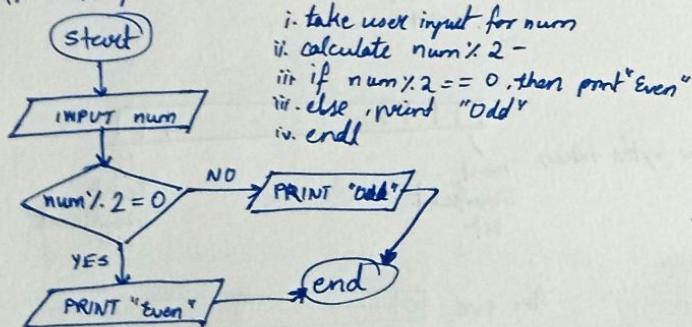 start
INPUT num
num % 2 = 0
NO
PRINT "Odd"
YES
PRINT "Even"
end
i. take user input for num
ii. calculate num % 2 -
iii. if num % 2 == 0, then print "Even"
iii. else, print "Odd"
iv. end